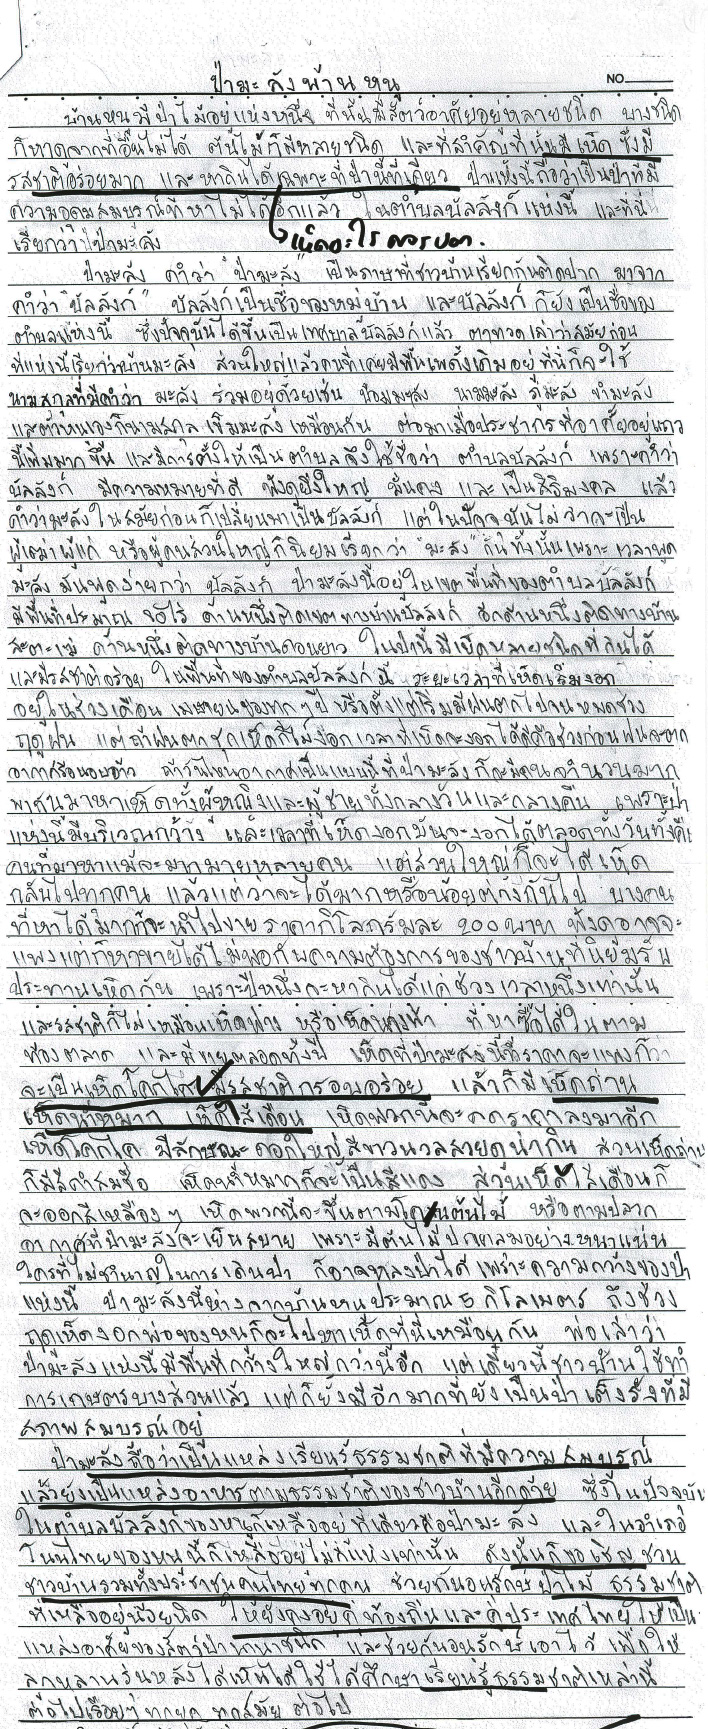 ป่ามะลังบ้านหนู
NO.
บ้านหนูมีป่าไม้อยู่แห่งหนึ่ง ที่นั้นมีสัตว์อาศัยอยู่หลายชนิด บางชนิด
ก็หาดูจากที่อื่นไม่ได้ ต้นไม้ก็มีหลายชนิด และที่สำคัญที่นั้นมีเห็ด ซึ่งมี
รสชาติอร่อยมาก และหากินได้เฉพาะที่ป่านี้ที่เดียว ป่าแห่งนี้ถือว่าเป็นป่าที่มี
ความอุดมสมบูรณ์ที่หาไม่ได้อีกแล้ว ในตำบลบัลลังก์แห่งนี้ และที่นี่
เรียกว่าป่ามะลัง
เห็ดอะไร ควรบอก.
ป่ามะลัง คำว่า "ป่ามะลัง" เป็นภาษาที่ชาวบ้านเรียกกันติดปาก มาจาก
คำว่า "บัลลังก์" บัลลังก์เป็นชื่อของหมู่บ้าน และบัลลังก์ ก็ยังเป็นชื่อของ
ตำบลแห่งนี้ ซึ่งปัจจุบันได้ขึ้นเป็นเทศบาลบัลลังก์แล้ว ตาทวดเล่าว่าสมัยก่อน
ที่แห่งนี้เรียกว่าบ้านมะลัง ส่วนใหญ่แล้วคนที่เคยมีพื้นเพดั้งเดิมอยู่ที่นี่ก็จะใช้
นามสกุลที่มีคำว่า มะลัง ร่วมอยู่ด้วยเช่น น้อมมะลัง นามมะลัง ภู่มะลัง ขำมะลัง
และตัวหนูเองก็นามสกุล เข็มมะลังเหมือนกัน ต่อมาเมื่อประชากรที่อาศัยอยู่แถว
นี้เพิ่มมากขึ้น และมีการตั้งให้เป็นตำบล จึงใช้ชื่อว่า ตำบลบัลลังก์ เพราะคำว่า
บัลลังก์ มีความหมายที่ดี ฟังดูยิ่งใหญ่ มั่นคง และเป็นสิริมงคล แล้ว
คำว่ามะลังในสมัยก่อนก็เปลี่ยนมาเป็นบัลลังก์ แต่ในปัจจุบันไม่ว่าจะเป็น
ผู้เฒ่าผู้แก่ หรือผู้คนส่วนใหญ่ก็นิยมเรียกว่า "มะลัง" กันทั้งนั้นเพราะเวลาพูด
มะลัง มันพูดง่ายกว่า บัลลังก์ ป่ามะลังนี้อยู่ในเขตพื้นที่ของตำบลบัลลังก์
มีพื้นที่ประมาณ ไร่ ด้านหนึ่งติดเขตทางบ้านบัลลังก์ อีกด้านหนึ่งติดทางบ้าน
ด้านหนึ่งติดทางบ้านดอนยาว ในป่านี้มีเห็ดหลายชนิดที่กินได้
และมีรสชาติอร่อย ในพื้นที่ของตำบลบัลลังก์นี้ ระยะเวลาที่เห็ดเริ่มงอก
อยู่ในช่วงเดือน เมษายนของทุกๆปี หรือตั้งแต่เริ่มมีฝนตกไปจนหมดช่วง
ฤดูฝน แต่ถ้าฝนตกชุกเห็ดก็ไม่งอก เวลาที่เห็ดจะงอกได้ดีคือช่วงก่อนฝนจะตก
อากาศร้อนอบอ้าว ถ้าวันไหนอากาศเป็นแบบนี้ที่ป่ามะลังก็จะมีคนจำนวนมาก
พากันมาหาเห็ดทั้งผู้หญิงและผู้ชายทั้งกลางวันและกลางคืน เพราะป่า
แห่งนี้มีบริเวณกว้าง และเวลาที่เห็ดงอกมันจะงอกได้ตลอดทั้งวันทั้งคืน
คนที่มาหาแม้จะมากมายหลายคน แต่ส่วนใหญ่ก็จะได้เห็ด
กลับไปทุกคน แล้วแต่ว่าจะได้มากหรือน้อยต่างกันไป บางคน
ที่หาได้มากก็จะนำไปขาย ราคากิโลกรัมละ 200 บาท ฟังดูอาจจะ
แพงแต่ก็หาขายได้ไม่พอกับความต้องการของชาวบ้านที่นิยมรับ
ประทานเห็ดกัน เพราะปีหนึ่งจะหากินได้แค่ช่วงเวลาหนึ่งเท่านั้น
และรสชาติก็ไม่เหมือนเห็ดฟาง หรือเห็ดนางฟ้า ที่หาซื้อได้ในตาม
ท้องตลาด และมีขายตลอดทั้งปี เห็ดที่ป่ามะลังนี้ที่ราคาจะแพงก็ว่า
จะเป็นเห็ดโคกไค มีรสชาติกรอบอร่อย แล้วก็มีเห็ดถ่าน
เห็ดน้ำหมาก เห็ดไส้เดือน เห็ดพวกนี้จะลดราคาลงมาอีก
เห็ดโคกไค มีลักษณะดอกใหญ่สีขาวนวลสวยดูน่ากิน ส่วนเห็ดถ่าน
ก็มีสีดำสมชื่อ เห็ดน้ำหมากก็จะเป็นสีแดง ส่วนเห็ดไส้เดือนก็
จะออกสีเหลืองๆ เห็ดพวกนี้จะขึ้นตามโคนต้นไม้ หรือตามปลวก
อากาศที่ป่ามะลังจะเย็นสบาย เพราะมีต้นไม้ปกคลุมอย่างหนาแน่น
ใครที่ไม่ชำนาญในการเดินป่า ก็อาจหลงป่าได้ เพราะความกว้างของป่า
แห่งนี้ ป่ามะลังนี้ห่างจากบ้านหนูประมาณ 5 กิโลเมตร ถึงช่วง
ฤดูเห็ดงอกพ่อของหนูก็จะไปหาเห็ดที่นี่เหมือนกัน พ่อเล่าว่า
ป่ามะลังแห่งนี้มีพื้นที่กว้างใหญ่กว่านี้อีก แต่เดี๋ยวนี้ชาวบ้านใช้ทำ
การเกษตรบางส่วนแล้ว แต่ก็ยังมีอีกมากที่ยังเป็นป่าเต็งรังที่มี
สภาพสมบูรณ์อยู่
ป่ามะลังถือว่าเป็นแหล่งเรียนรู้ธรรมชาติที่มีความสมบูรณ์
แล้วยังเป็นแหล่งอาหารตามธรรมชาติของชาวบ้านอีกด้วย ซึ่งในปัจจุบัน
ในตำบลบัลลังก์ของหนูก็เหลืออยู่ที่เดียวคือป่ามะลัง และในอำเภอ
โนนไทยของหนูนี้ก็เหลืออยู่ไม่กี่แห่งเท่านั้น ดังนั้นก็ขอเชิญชวน
ชาวบ้านรวมทั้งประชาชนคนไทยทุกคน ช่วยกันอนุรักษ์ป่าไม้ ธรรมชาติ
ที่เหลืออยู่น้อยนิด ให้ยังคงอยู่คู่ท้องถิ่นและคู่ประเทศไทยให้เป็น
แหล่งอาศัยของสัตว์ป่านานาชนิด และช่วยกันอนุรักษ์เอาไว้ เพื่อให้
ลูกหลานรุ่นหลังได้เห็นได้ใช้ได้ศึกษาเรียนรู้ธรรมชาติเหล่านี้
ต่อไปเรื่อยๆ ทุกยุค ทุกสมัย ต่อไป